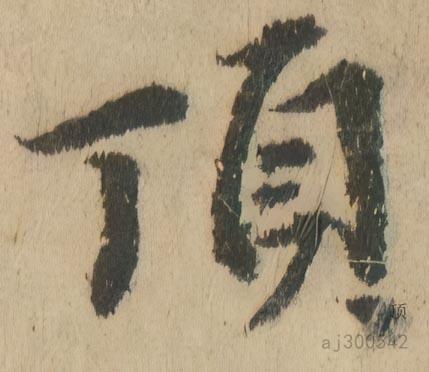 頂
顶
aj300542